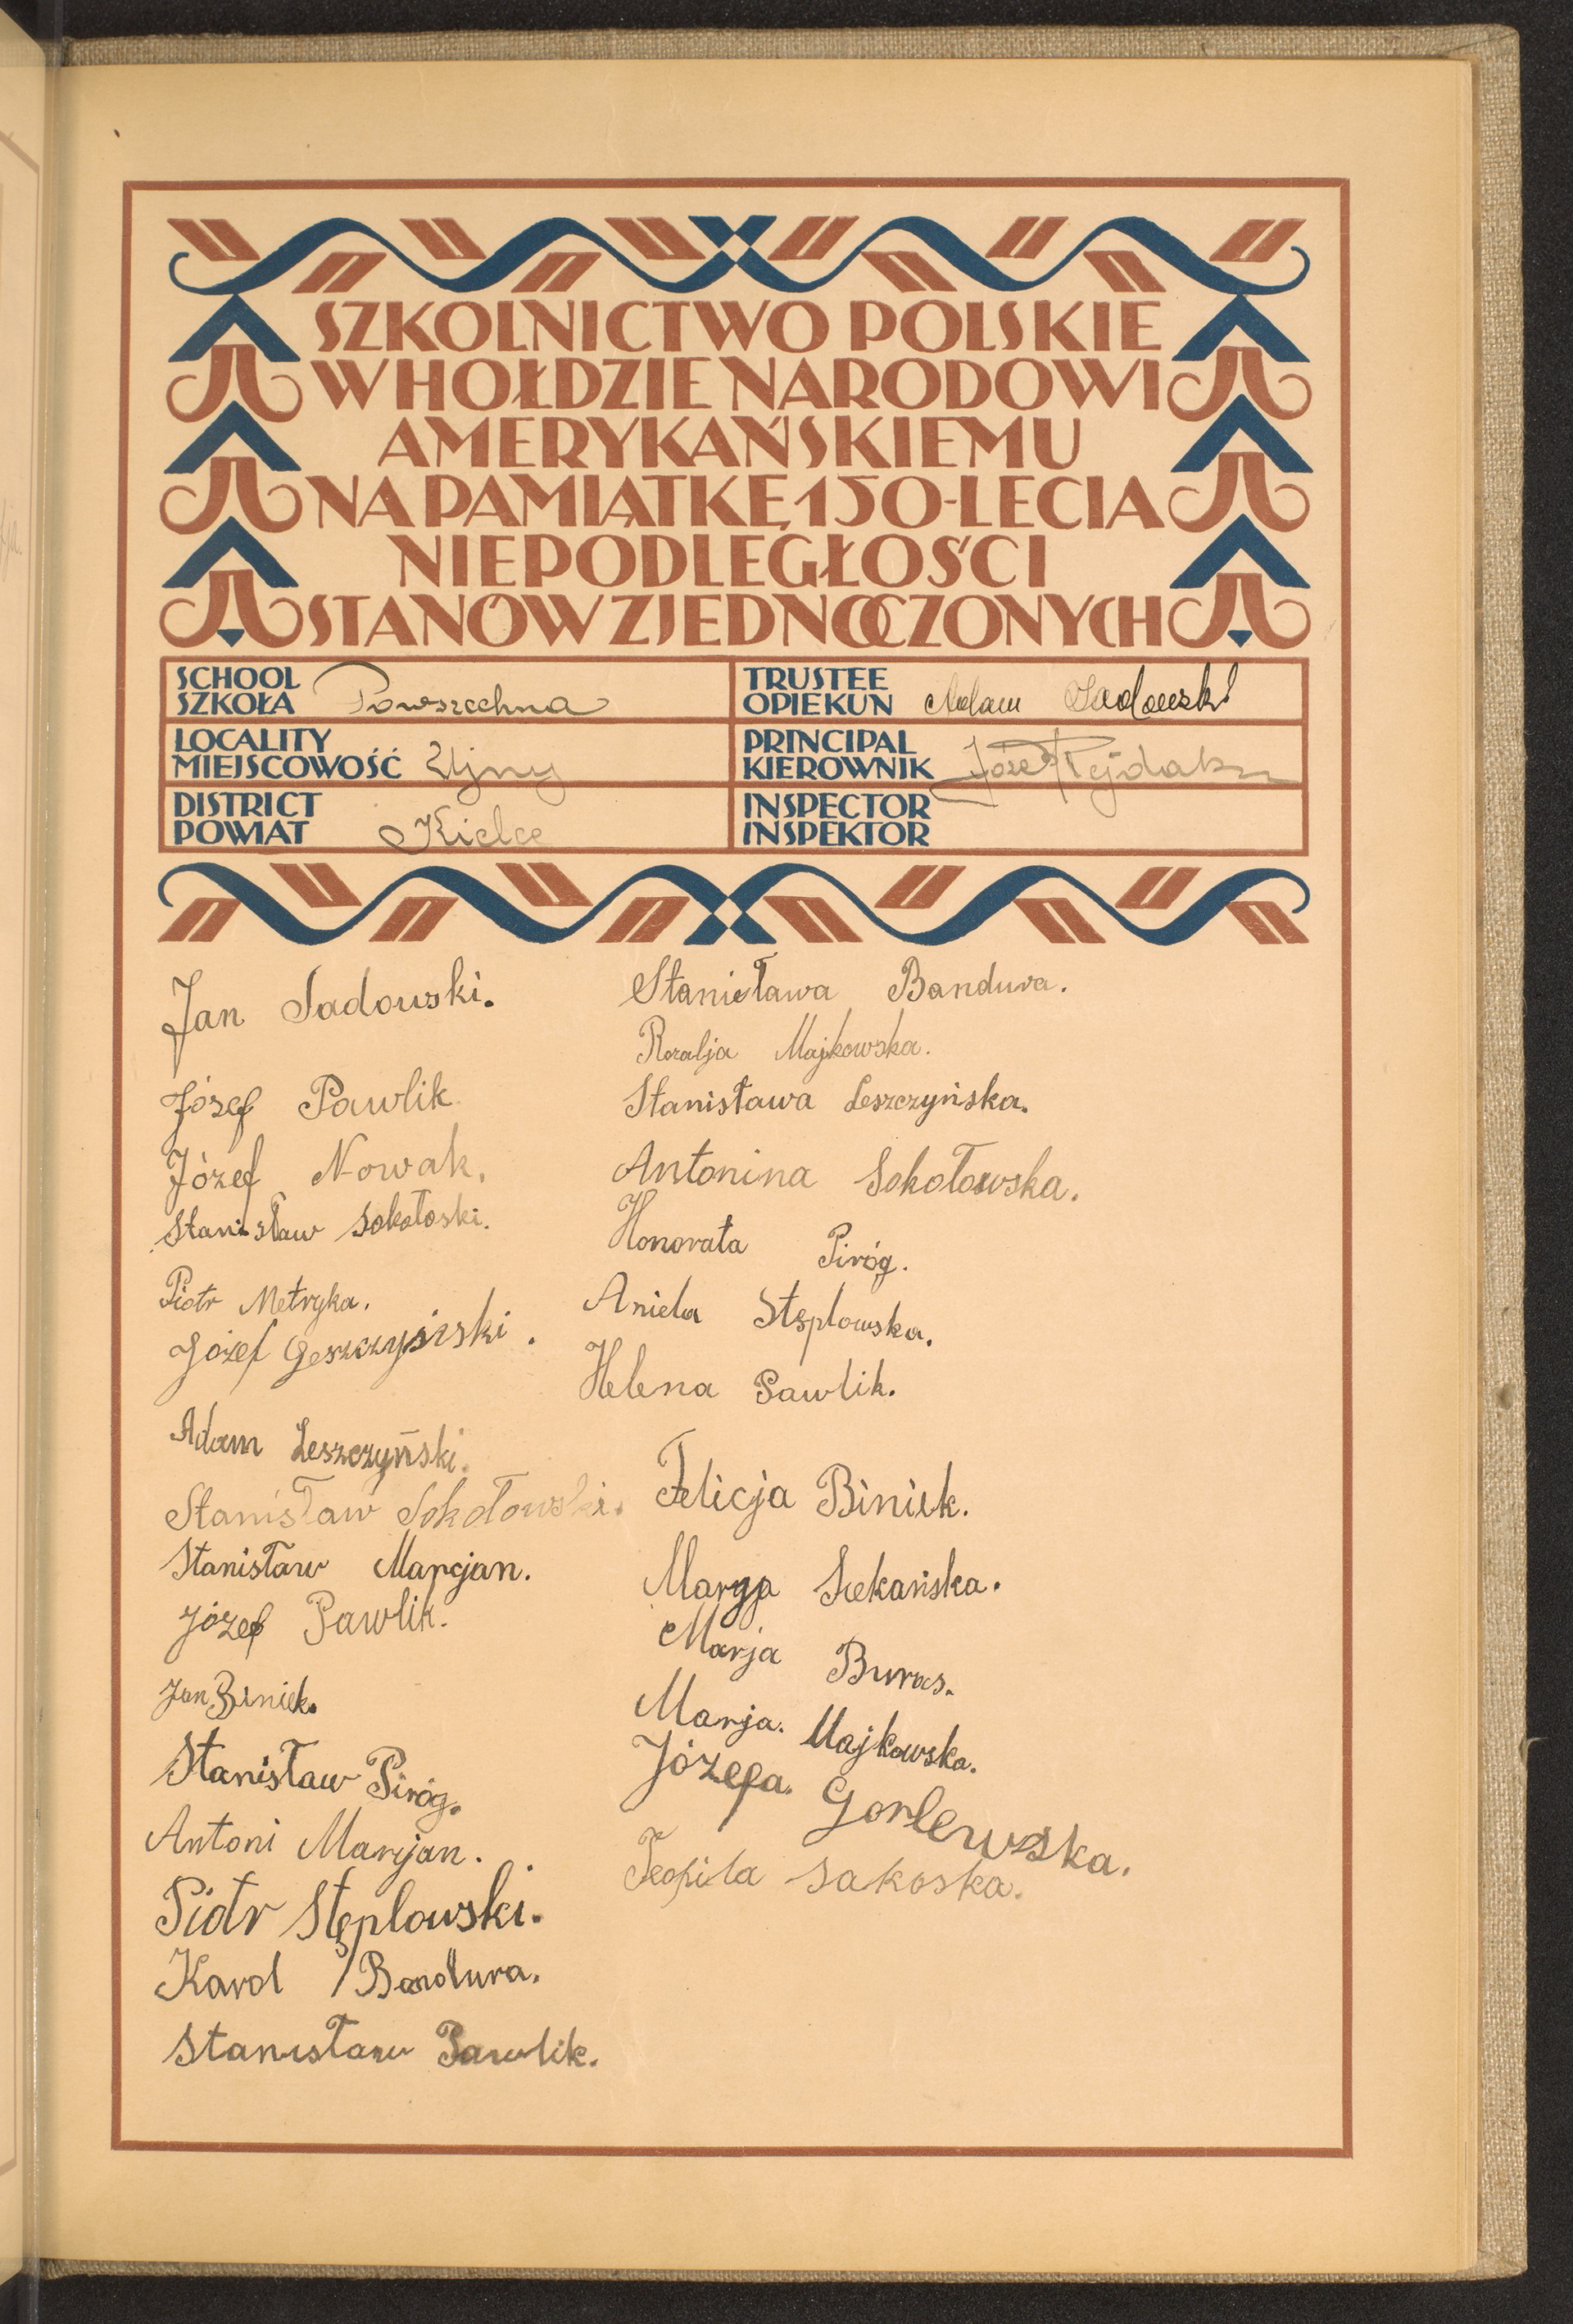 SZKOLNICTWO POLSKIE
W HOŁDZIE NARODOWI
AMERYKAŃSKIEMU
NA PAMIĄTKĘ 150-LECIA
NIEPODLEGŁOŚCI
STANÓW ZJEDNOCZONYCH
SCHOOL
SZKOŁA Powszechna
TRUSTEE
OPIEKUN Adam Sadowski
LOCALITY
MIEJSCOWOŚĆ Ujny
PRINCIPAL
KIEROWNIK Józef
DISTRICT
POWIAT Kielce
INSPECTOR
INSPEKTOR
Jan Sadowski.
Józef Pawlik
Józef Nowak.
Stanisław Sokołoski.
Piotr Metryka.
Józef
Adam Leszczyński.
Stanisław Sokołowski.
Stanisław Marcjan.
Józef Pawlik.
Jan Biniek.
Stanisław Piróg.
Antoni Marcjan.
Piotr Stęplowski.
Karol Bandura.
Stanisław Pawlik.
Stanisława Bandura.
Rozalja Majkowska.
Stanisława Leszczyńska.
Antonina Sokołowska.
Honorata Piróg.
Aniela Stęplowska.
Helena Pawlik.
Felicja Biniek.
Maryja Siekańska.
Marja Buras.
Marja. Majkowska.
Józefa. Gorlewska.
Teofila Sakoska.